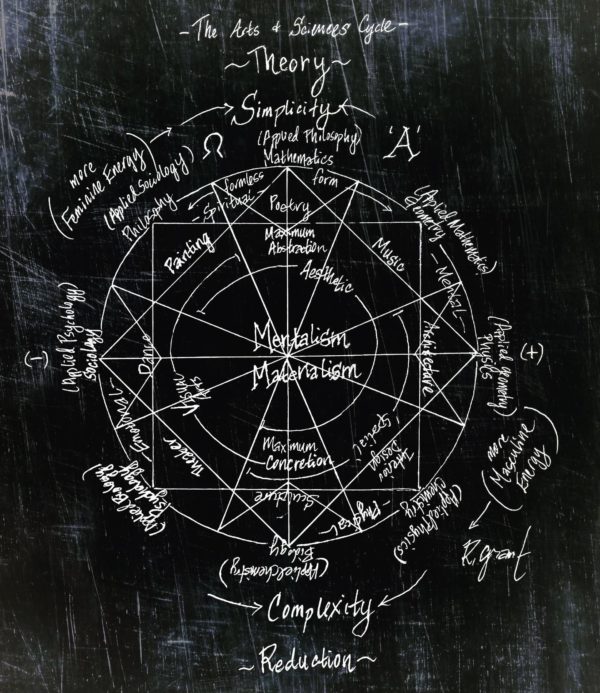 - The Arts & Sciences Cycle -
~ Theory ~
Simplicity
(Applied Philosophy)
Mathematics
Ω
'A'
(more
Feminine Energy)
(Applied Sociology)
Philosophy
formless
form
- Spiritual -
Poetry
Maximum
Abstraction
Aesthetic
Painting
Music
(Applied Mathematics)
Geometry
- Mental -
(Applied Psychology)
Sociology
(-)
Dance
Mentalism
Materialism
Architecture
(Applied Geometry)
Physics
(+)
Visual
Arts
- Emotional -
Theater
(Applied Biology)
Psychology
Maximum
Concretion
Sculpture
Interior
Design
- Physical -
(Applied Physics)
Chemistry
(more
Masculine
Energy)
Biology
(Applied Chemistry)
R.grant
Complexity
~ Reduction ~